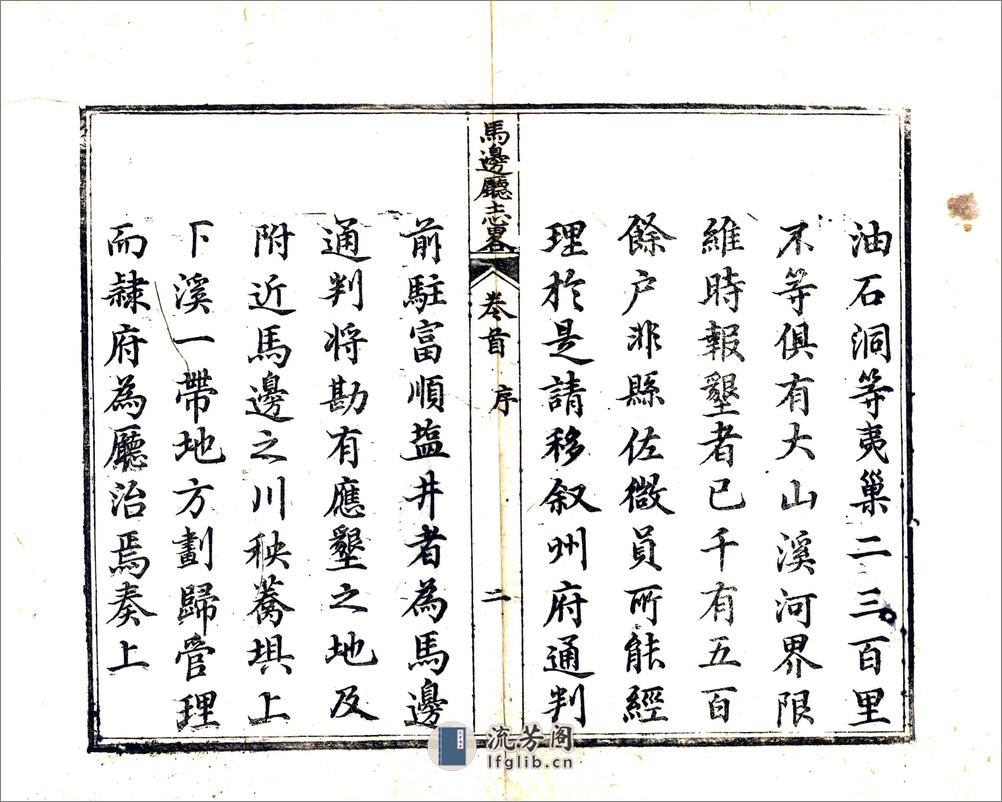 油石洞等夷巢二三百里
不等俱有大山溪河界限
維時報墾者已千有五百
餘户非縣佐微員所能經
理於是請移叙州府通判
馬邊廳志畧
卷首
序
二
前駐富順塩井者為馬邊
通判将勘有應墾之地及
附近馬邊之川秧蕎埧上
下溪一帶地方劃歸管理
而隷府為廳治焉奏上
流芳阁
lfglib.cn